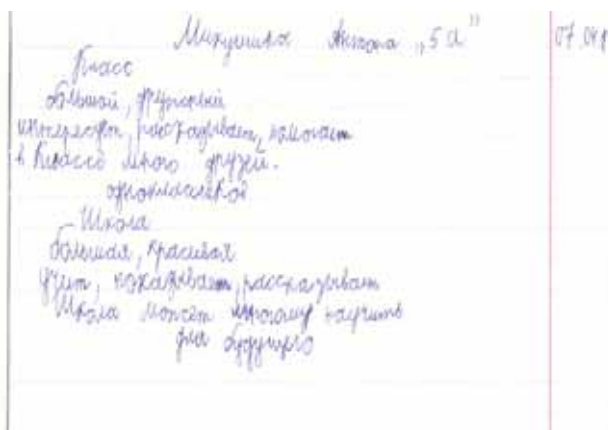 Антона „5 а” 07.04
Класс
большой, дружный
интересует, рассказывает, помогает
в Классе много друзей.
одноклассной
Школа
большая, красивая
учит, показывает, рассказывает
Школа может многому научить
для будущего